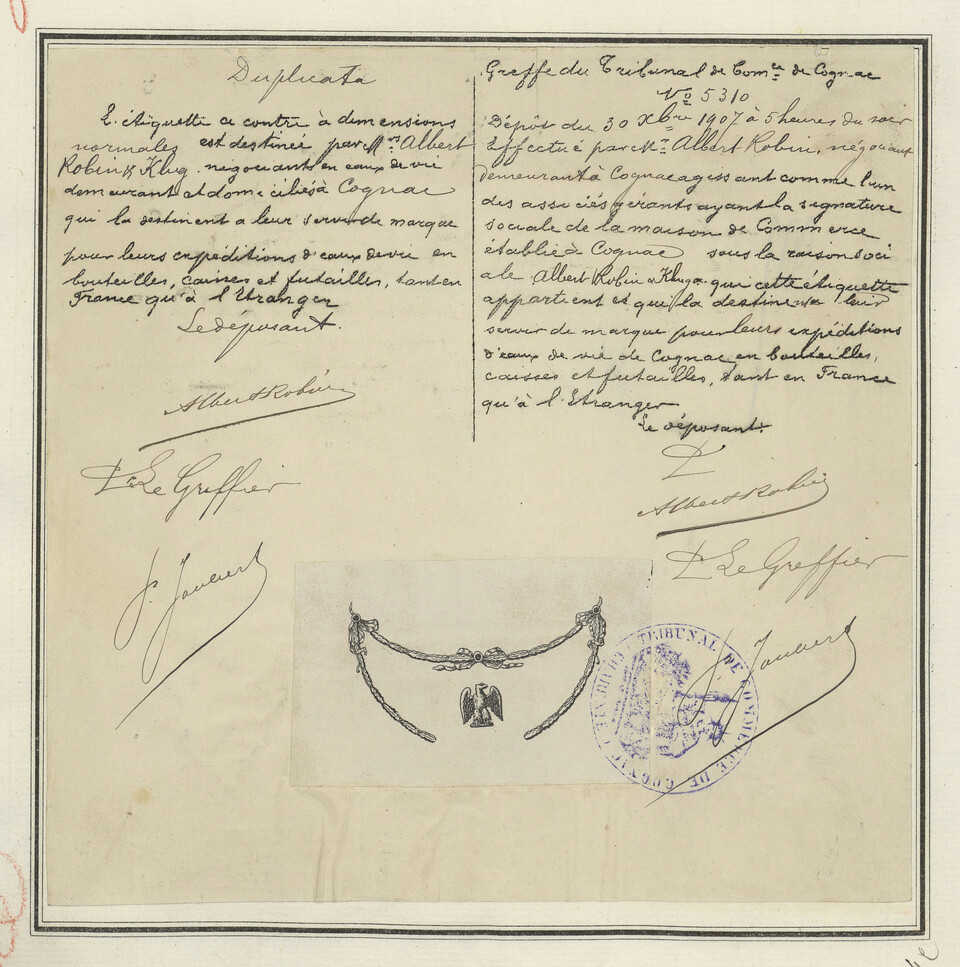 Duplicata
L'étiquette ci contre à dimensions
normales est destinée par Mr Albert
Robin & Klug négociants en eaux de vie
demeurant et domiciliés à Cognac
qui la destinent a leur servir de marque
pour leurs expéditions d'eaux de vie en
bouteilles, caisses et futailles, tant en
France qu'à l'Etranger
Le déposant.
Albert Robin
Pr Le Greffier
Greffe du Tribunal de Comce de Cognac
No 5310
Dépôt du 30 Xbre 1907 à 5 heures du soir
Effectué par Mr Albert Robin, négociant
demeurant à Cognac agissant comme l'un
des associés gérants ayant la signature
sociale de la maison de Commerce
établie à Cognac sous la raison soci
ale Albert Robin & Klug qui cette étiquette
appartient et qui la destine a leur
servir de marque pour leurs expéditions
d'eaux de vie de Cognac en bouteilles,
caisses et futailles, tant en France
qu'à l'Etranger
Le déposant.
Albert Robin
Pr Le Greffier
TRIBUNAL DE COMMERCE DE COGNAC